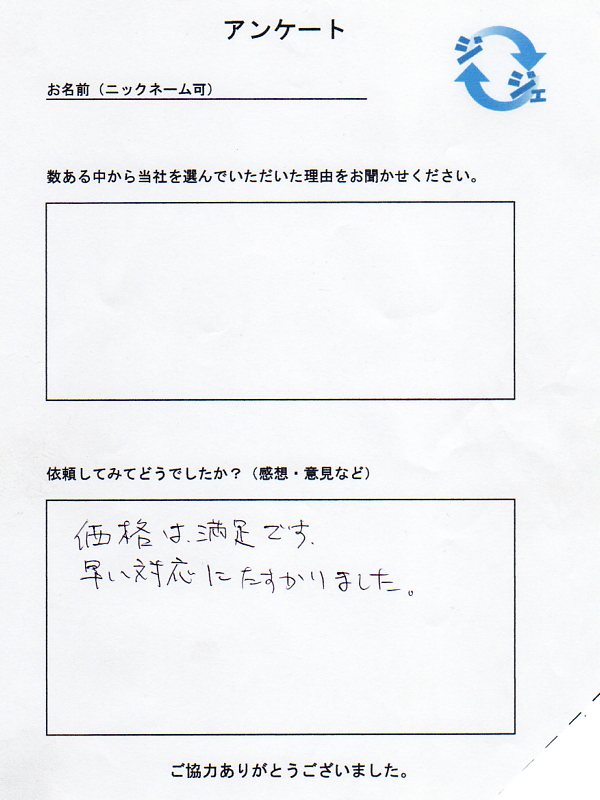 アンケート
ジジェ
お名前（ニックネーム可）
数ある中から当社を選んでいただいた理由をお聞かせください。
依頼してみてどうでしたか？（感想・意見など）
価格は、満足です、
早い対応にたすかりました。
ご協力ありがとうございました。